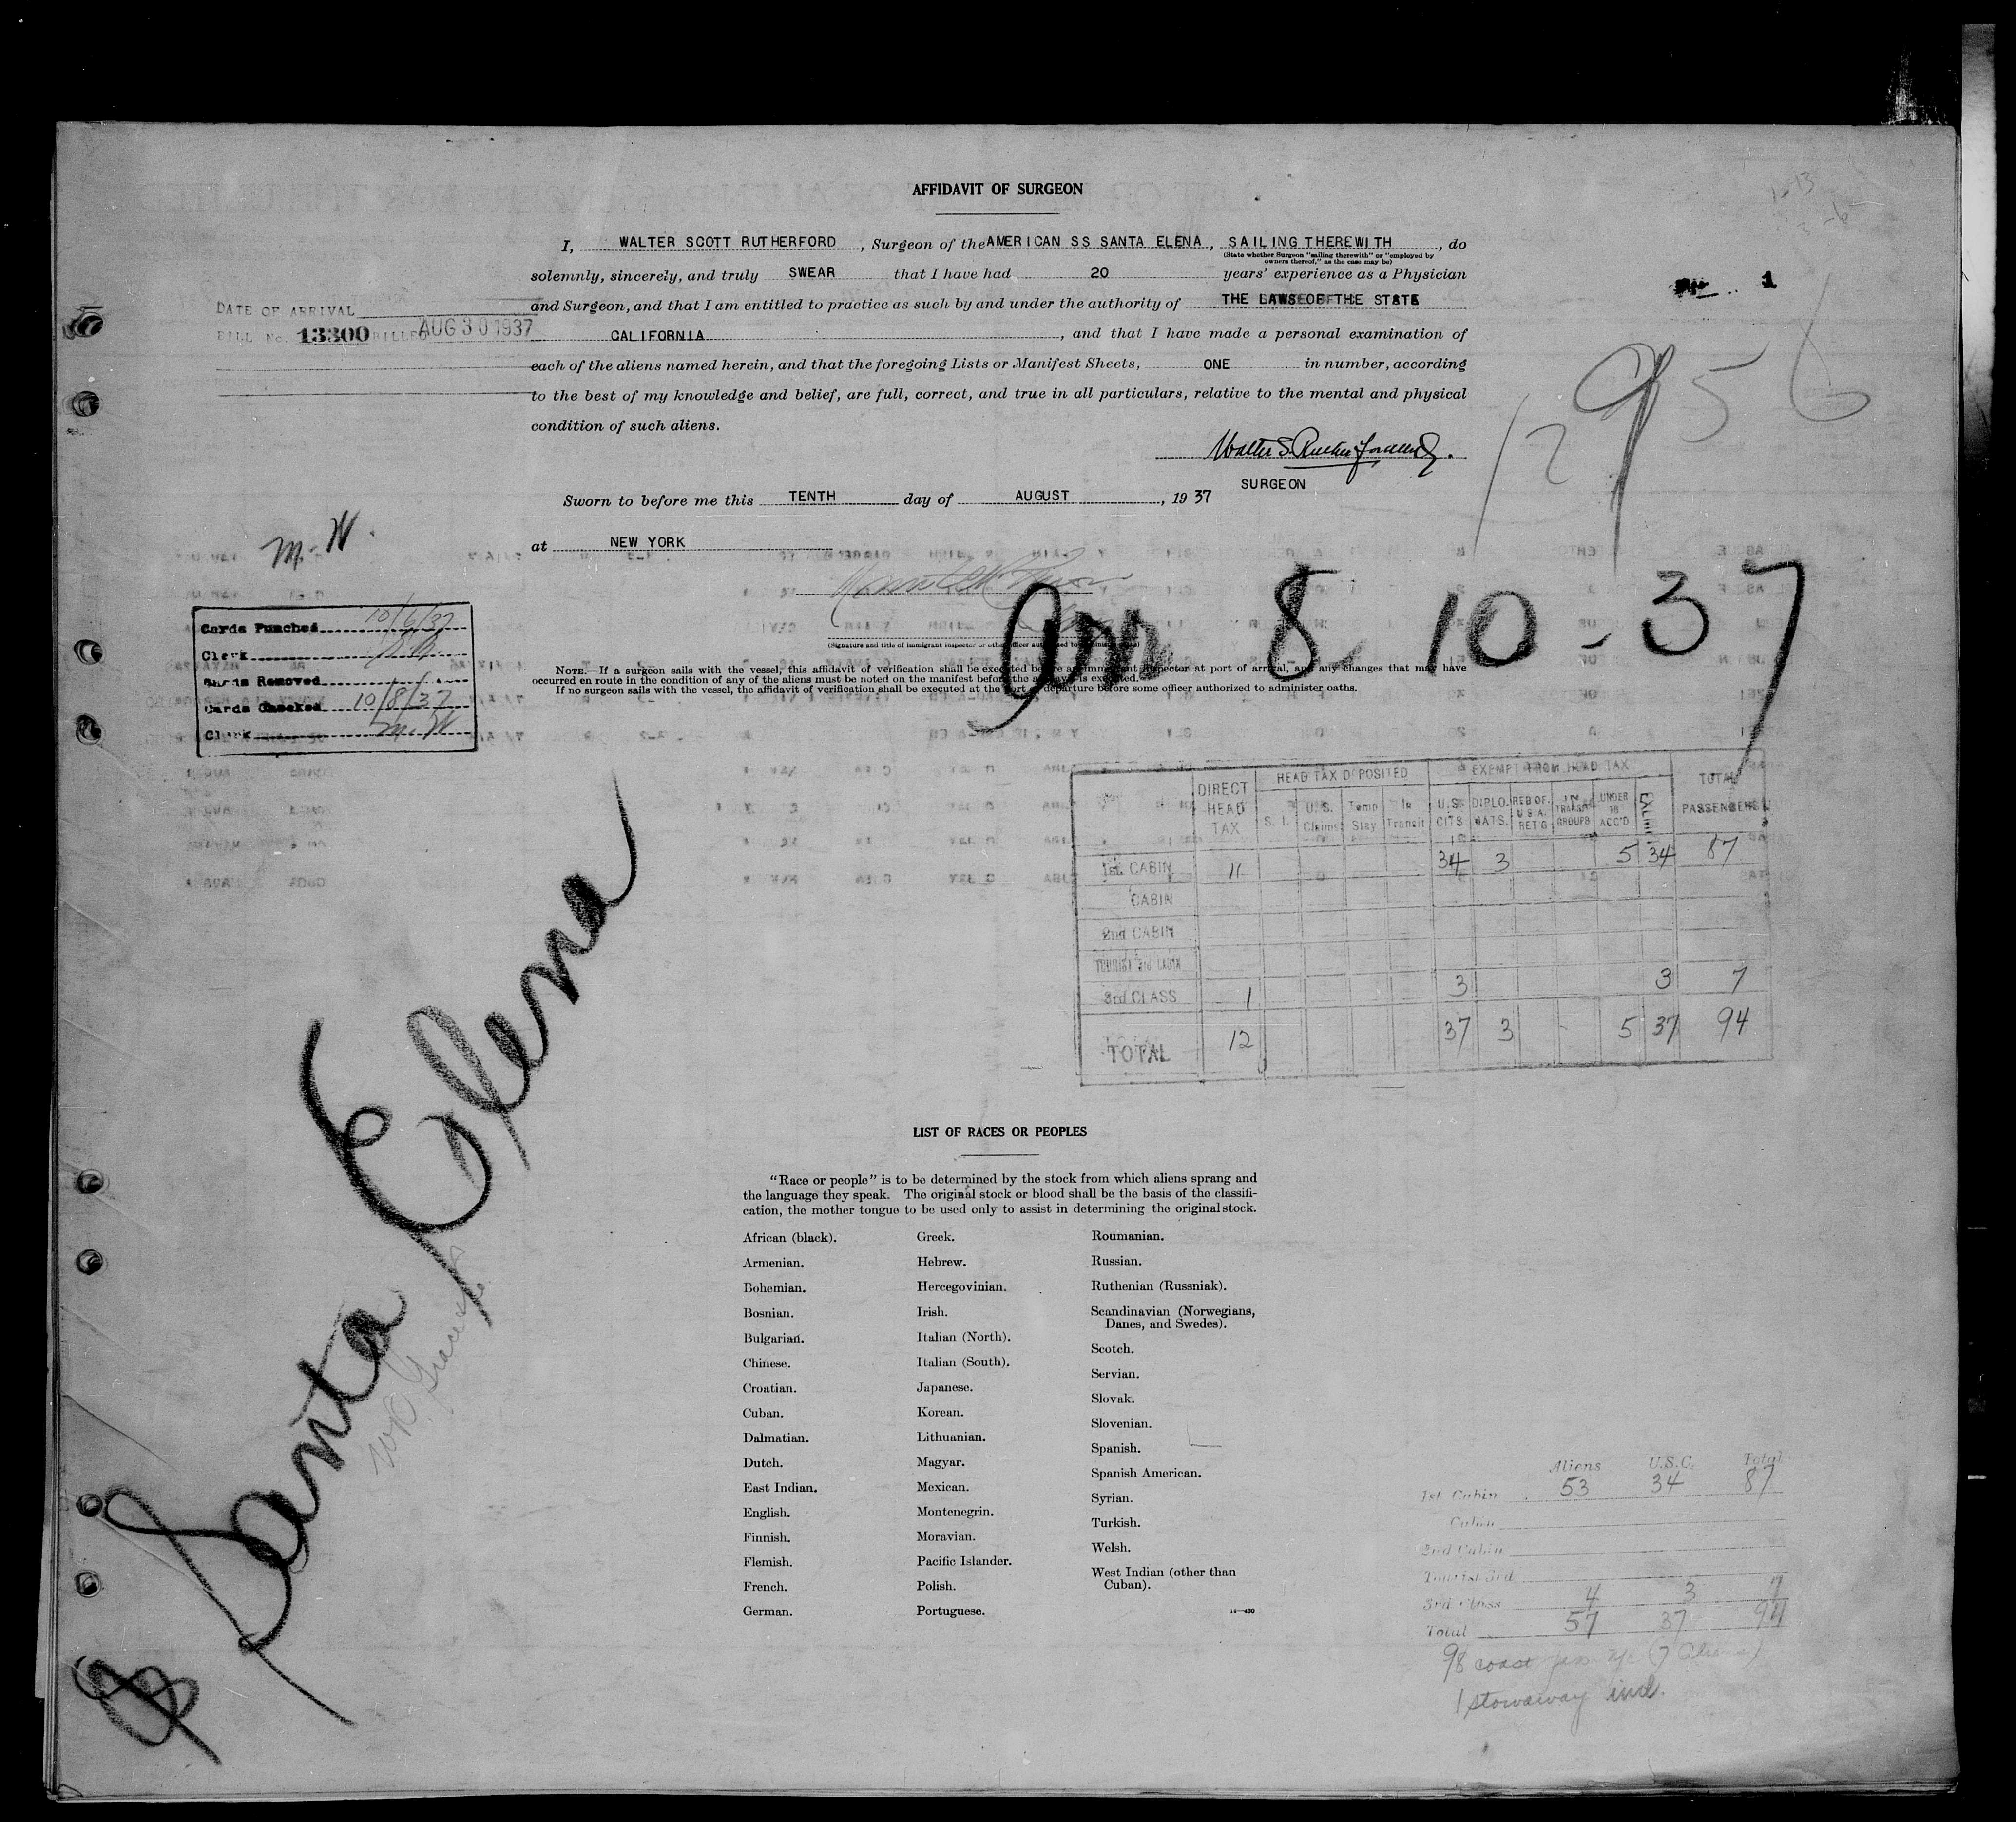 AFFIDAVIT OF SURGEON
I, WALTER SCOTT RUTHERFORD, Surgeon of the AMERICAN SS SANTA ELENA, SAILING THEREWITH, do
(State whether Surgeon "sailing therewith" or "employed by owners thereof," as the case may be)
solemnly, sincerely, and truly SWEAR that I have had 20 years' experience as a Physician
and Surgeon, and that I am entitled to practice as such by and under the authority of THE LAWS OF THE STATE
CALIFORNIA, and that I have made a personal examination of
each of the aliens named herein, and that the foregoing Lists or Manifest Sheets, ONE in number, according
to the best of my knowledge and belief, are full, correct, and true in all particulars, relative to the mental and physical
condition of such aliens.
Walter S. Rutherford
SURGEON
Sworn to before me this TENTH day of AUGUST, 1937
at NEW YORK
DATE OF ARRIVAL
BILL No. 13300 BILLED AUG 30 1937
1
12956
M. W.
Arr 8, 10 - 37
(Signature and title of immigrant inspector or other officer authorized to
NOTE.—If a surgeon sails with the vessel, this affidavit of verification shall be executed before an immigrant inspector at port of arrival, and any changes that may have
occurred en route in the condition of any of the aliens must be noted on the manifest before the affidavit is executed.
If no surgeon sails with the vessel, the affidavit of verification shall be executed at the port of departure before some officer authorized to administer oaths.
Cards Punched 10/6/37
Clerk
Cards Removed
Cards Checked 10/8/37
Clerk M. W
DIRECT HEAD TAX
HEAD TAX DEPOSITED
EXEMPT FROM HEAD TAX
TOTAL PASSENGERS
S. I.
U.S. Claims
Temp Stay
In Transit
U.S. CITS
DIPLOMATS.
RES OF U.S.A. RET'G
IN TRANSIT GROUPS
UNDER 16 ACC'D
1st CABIN 11 34 3 5 34 87
CABIN
2nd CABIN
TOURIST 3rd CABIN
3rd CLASS 1 3 3 7
TOTAL 12 37 3 5 37 94
Santa Elena
W. R. Grace
LIST OF RACES OR PEOPLES
"Race or people" is to be determined by the stock from which aliens sprang and
the language they speak. The original stock or blood shall be the basis of the classifi-
cation, the mother tongue to be used only to assist in determining the original stock.
African (black).
Armenian.
Bohemian.
Bosnian.
Bulgarian.
Chinese.
Croatian.
Cuban.
Dalmatian.
Dutch.
East Indian.
English.
Finnish.
Flemish.
French.
German.
Greek.
Hebrew.
Hercegovinian.
Irish.
Italian (North).
Italian (South).
Japanese.
Korean.
Lithuanian.
Magyar.
Mexican.
Montenegrin.
Moravian.
Pacific Islander.
Polish.
Portuguese.
Roumanian.
Russian.
Ruthenian (Russniak).
Scandinavian (Norwegians,
Danes, and Swedes).
Scotch.
Servian.
Slovak.
Slovenian.
Spanish.
Spanish American.
Syrian.
Turkish.
Welsh.
West Indian (other than
Cuban).
14—430
Aliens U.S.C. Total
1st Cabin 53 34 87
Cabin
2nd Cabin
Tourist 3rd
3rd Class 4 3 7
Total 57 37 94
98 coast
1 stowaway incl.